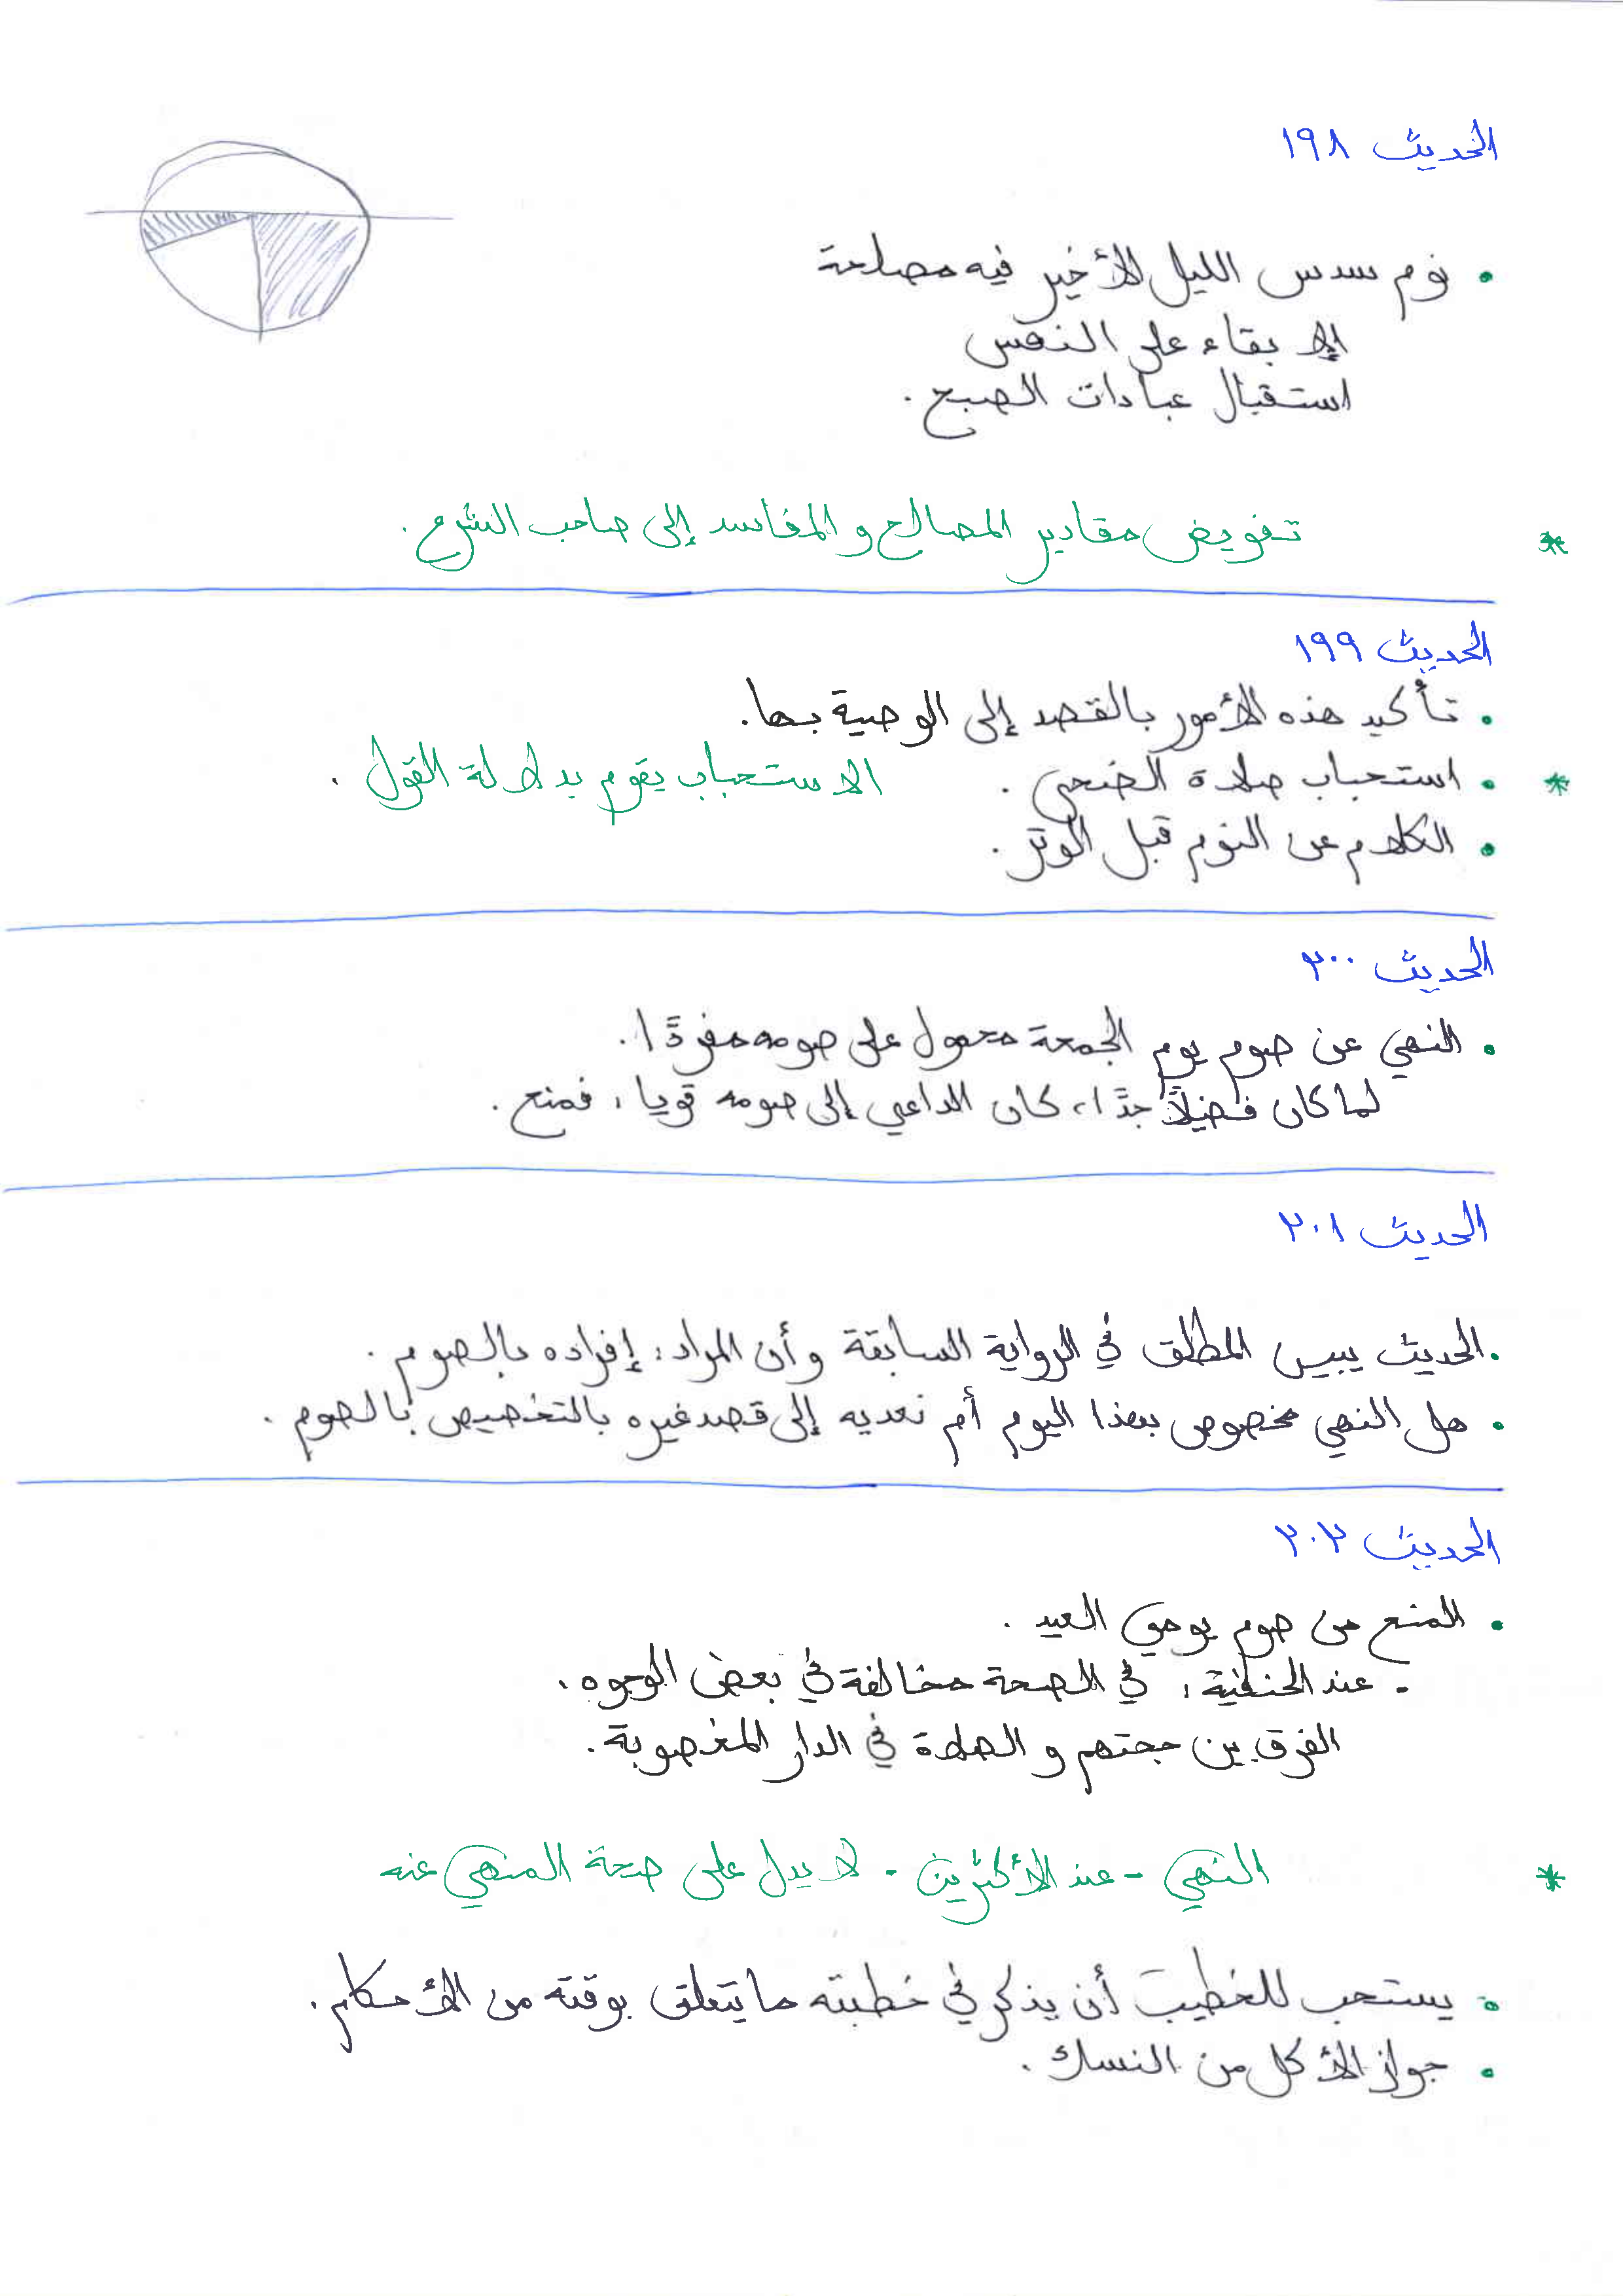 الحديث ١٩٨
• نوم سدس الليل الأخير فيه مصلحة
الإبقاء على النفس
استقبال عبادات الصبح .
* تفويض مقادير المصالح و المفاسد إلى صاحب الشرع .
الحديث ١٩٩
• تأكيد هذه الأمور بالقصد إلى الوصية بها .
* • استحباب صلاة الضحى . الاستحباب يقوم بدلالة القول .
• الكلام عن النوم قبل الوتر .
الحديث ٢٠٠
• النهي عن صوم يوم الجمعة محمول على صومه مفردًا .
لما كان فضيلاً جدًا، كان الداعي إلى صومه قويا، فمنع .
الحديث ٢٠١
• الحديث يبين المطلق في الرواية السابقة وأن المراد: إفراده بالصوم .
• هل النهي مخصوص بهذا اليوم أم نعديه إلى قصد غيره بالتخصيص بالصوم .
الحديث ٢٠٢
• المنع من صوم يومي العيد .
- عند الحنفية: في الصحة مخالفة في بعض الوجوه .
الفرق بين حجتهم و الصلاة في الدار المغصوبة .
* النهي - عند الأكثرين - لا يدل على صحة المنهي عنه
• يستحب للخطيب أن يذكر في خطبته ما يتعلق بوقته من الأحكام .
• جواز الأكل من النسك .